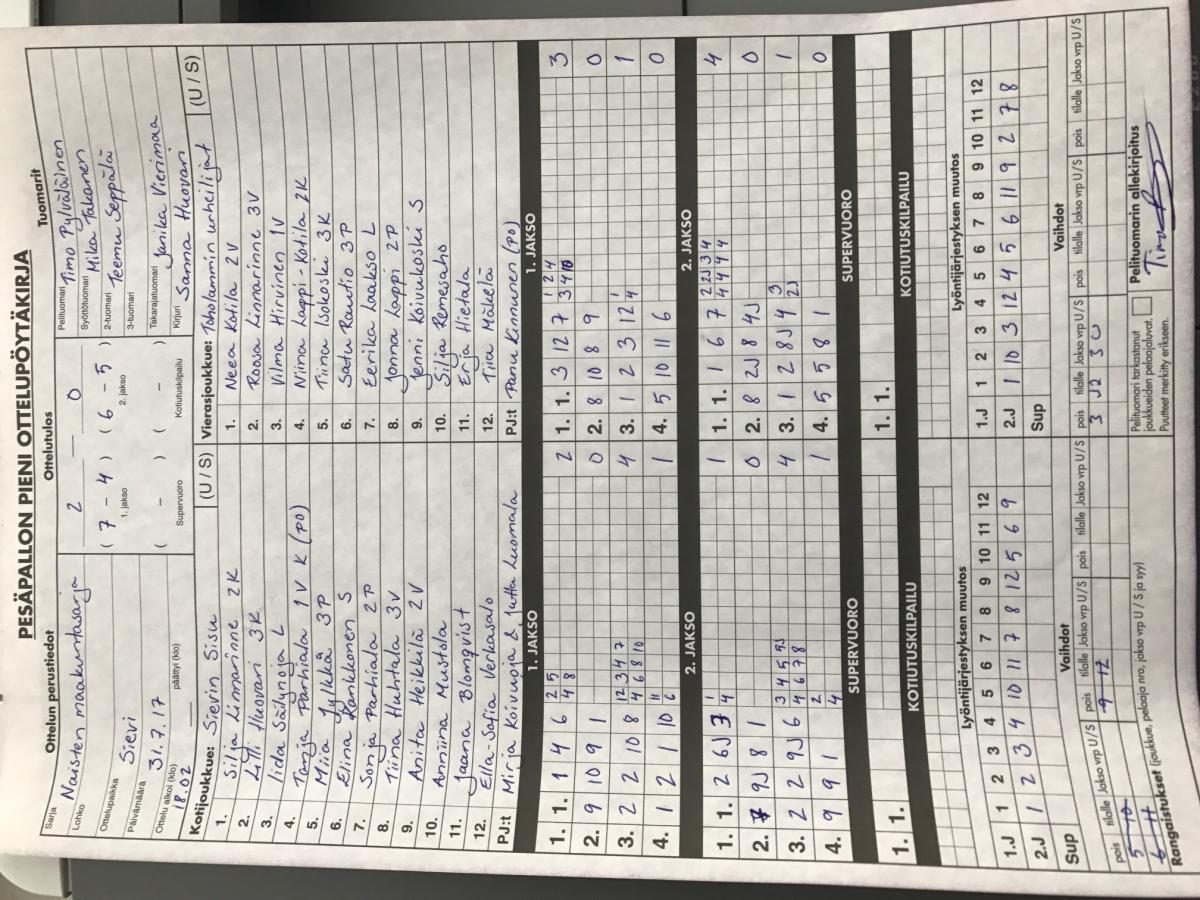 PESÄPALLON PIENI OTTELUPÖYTÄKIRJA
Ottelun perustiedot
Sarja
Lohko Naisten maakuntasarja
Ottelupaikka Sievi
Päivämäärä 31.7.17
Ottelu alkoi (klo) 18.02 päättyi (klo)
Ottelutulos
2 — 0
( 7 - 4 ) ( 6 - 5 )
1. jakso 2. jakso
( - ) ( - )
Supervuoro Kotiutuskilpailu
Tuomarit
Pelituomari Timo Pylväläinen
Syöttötuomari Mika Takanen
2-tuomari Teemu Seppälä
3-tuomari
Takarajatuomari Janika Vierimaa
Kirjuri Sanna Huovari
Kotijoukkue: Sievin Sisu (U / S)
1. Silja Linnarinne 2K
2. Lilli Huovari 3K
3. Iida Säilynoja L
4. Tanja Parhiala 1V K (PO)
5. Miia Jylkkä 3P
6. Elina Rankkonen S
7. Sonja Parhiala 2P
8. Tiina Huhtala 3V
9. Anita Heikkilä 2V
10. Anniina Mustola
11. Jaana Blomqvist
12. Ella-Sofia Verkasalo
PJ:t Mirja Koivuoja & Jutta Luomala
Vierasjoukkue: Toholammin urheilijat (U / S)
1. Neea Kotila 2V
2. Roosa Linnarinne 3V
3. Vilma Hirvinen 1V
4. Niina Lappi-Kotila 2K
5. Tiina Isokoski 3K
6. Satu Rautio 3P
7. Eerika Laakso L
8. Jonna Lappi 2P
9. Jenni Koivukoski S
10. Silja Remesaho
11. Erja Hietala
12. Tiia Mäkelä
PJ:t Panu Kinnunen (PO)
1. JAKSO
1. 1. 1 4 6 2 5 4 8 2
2. 9 10 9 1 0
3. 2 2 10 8 12 3 4 7 4 6 8 10 4
4. 1 2 1 10 11 6 1
1. JAKSO
1. 1. 3 12 7 1 2 4 3 4 10 3
2. 8 10 8 9 0
3. 1 2 3 12 1 4 1
4. 5 10 11 6 0
2. JAKSO
1. 1. 2 6J 3 1 4 1
2. 9J 8 1 0
3. 2 2 9J 6 3 4 5 5J 4 6 7 8 4
4. 9 9 1 2 4 1
2. JAKSO
1. 1. 1 6 7 2 2J 3 4 4 4 4 4 4
2. 8 2J 8 4J 0
3. 1 2 8J 4 3 2J 1
4. 5 5 8 1 0
SUPERVUORO
1. 1.
KOTIUTUSKILPAILU
SUPERVUORO
1. 1.
KOTIUTUSKILPAILU
Lyöntijärjestyksen muutos
1 2 3 4 5 6 7 8 9 10 11 12
1.J
2.J 1 2 3 4 10 11 7 8 12 5 6 9
Sup
Lyöntijärjestyksen muutos
1 2 3 4 5 6 7 8 9 10 11 12
1.J
2.J 1 10 3 12 4 5 6 11 9 2 7 8
Sup
Vaihdot
pois tilalle Jakso vrp U / S pois tilalle Jakso vrp U / S pois tilalle Jakso vrp U / S
5 10
6 11
9 12
Vaihdot
pois tilalle Jakso vrp U / S pois tilalle Jakso vrp U / S pois tilalle Jakso vrp U / S
3 J2 3 U
Rangaistukset (joukkue, pelaaja nro, jakso vrp U / S ja syy)
Pelituomari tarkastanut
joukkueiden pelaajaluvat.
Puutteet merkitty erikseen.
Pelituomarin allekirjoitus